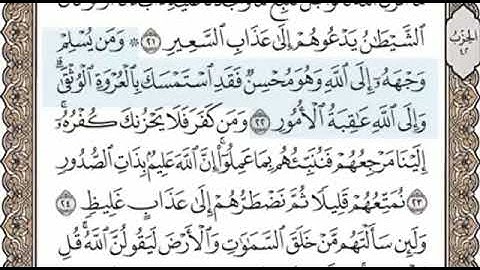 ٱلشَّيْطَٰنُ يَدْعُوهُمْ إِلَىٰ عَذَابِ ٱلسَّعِيرِ ٢١ ۞ وَمَن يُسْلِمْ
وَجْهَهُۥٓ إِلَى ٱللَّهِ وَهُوَ مُحْسِنٌ فَقَدِ ٱسْتَمْسَكَ بِٱلْعُرْوَةِ ٱلْوُثْقَىٰۗ
وَإِلَى ٱللَّهِ عَٰقِبَةُ ٱلْأُمُورِ ٢٢ وَمَن كَفَرَ فَلَا يَحْزُنكَ كُفْرُهُۥٓۚ
إِلَيْنَا مَرْجِعُهُمْ فَنُنَبِّئُهُم بِمَا عَمِلُوٓا۟ۚ إِنَّ ٱللَّهَ عَلِيمٌۢ بِذَاتِ ٱلصُّدُورِ
٢٣ نُمَتِّعُهُمْ قَلِيلًا ثُمَّ نَضْطَرُّهُمْ إِلَىٰ عَذَابٍ غَلِيظٍ ٢٤
وَلَئِن سَأَلْتَهُم مَّنْ خَلَقَ ٱلسَّمَٰوَٰتِ وَٱلْأَرْضَ لَيَقُولُنَّ ٱللَّهُۚ قُلِ
الحزب
٤٢